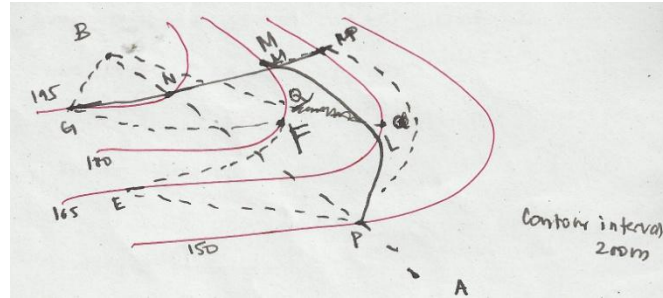 B
M
M
MP
195
N
Q
G
F
L
180
165
E
150
P
A
Contour interval
200m